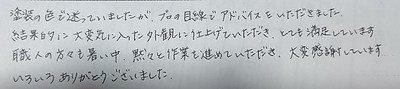 塗装の色で迷っていましたが、プロの目線でアドバイスをいただきました。
結果的に大変気に入った外観に仕上げていただき、とても満足しています
職人の方々も暑い中、黙々と作業を進めていただき、大変感謝しています
いろいろありがとうございました。